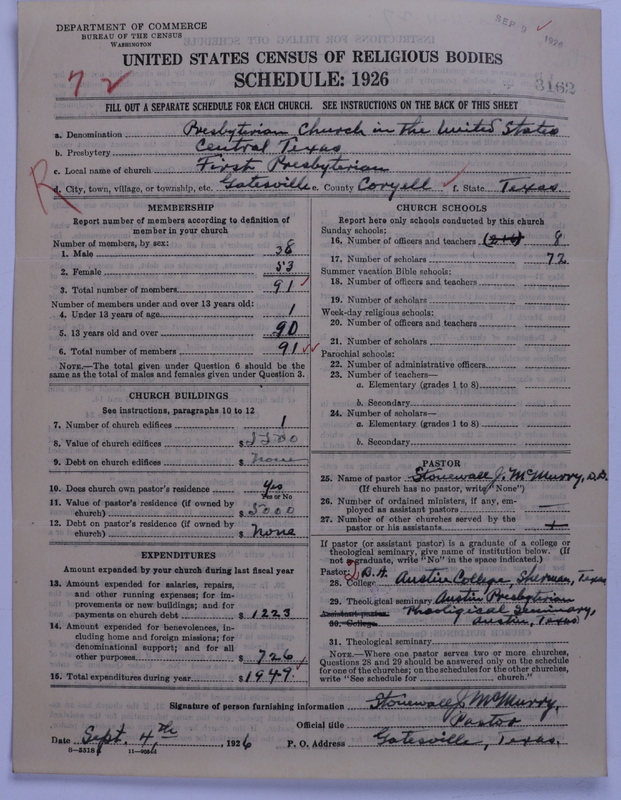 DEPARTMENT OF COMMERCE
BUREAU OF THE CENSUS
WASHINGTON
SEP 9 1926
UNITED STATES CENSUS OF RELIGIOUS BODIES
SCHEDULE: 1926
72
3162
FILL OUT A SEPARATE SCHEDULE FOR EACH CHURCH. SEE INSTRUCTIONS ON THE BACK OF THIS SHEET
a. Denomination Presbyterian Church in the United States
b. Presbytery Central Texas
c. Local name of church First Presbyterian
R
d. City, town, village, or township, etc. Gatesville e. County Coryell f. State Texas.
MEMBERSHIP
Report number of members according to definition of
member in your church
Number of members, by sex:
1. Male 38
2. Female 53
3. Total number of members 91
Number of members under and over 13 years old:
4. Under 13 years of age 1
5. 13 years old and over 90
6. Total number of members 91
NOTE.—The total given under Question 6 should be the
same as the total of males and females given under Question 3.
CHURCH BUILDINGS
See instructions, paragraphs 10 to 12
7. Number of church edifices 1
8. Value of church edifices $
9. Debt on church edifices $ none
10. Does church own pastor's residence Yes
Yes or No
11. Value of pastor's residence (if owned by
church) $ 5000
12. Debt on pastor's residence (if owned by
church) $ none
EXPENDITURES
Amount expended by your church during last fiscal year
13. Amount expended for salaries, repairs,
and other running expenses; for im-
provements or new buildings; and for
payments on church debt $ 1223
14. Amount expended for benevolences, in-
cluding home and foreign missions; for
denominational support; and for all
other purposes $ 726
15. Total expenditures during year $ 1949.
CHURCH SCHOOLS
Report here only schools conducted by this church
Sunday schools:
16. Number of officers and teachers 8
17. Number of scholars 72
Summer vacation Bible schools:
18. Number of officers and teachers
19. Number of scholars
Week-day religious schools:
20. Number of officers and teachers
21. Number of scholars
Parochial schools:
22. Number of administrative officers
23. Number of teachers—
a. Elementary (grades 1 to 8)
b. Secondary
24. Number of scholars—
a. Elementary (grades 1 to 8)
b. Secondary
PASTOR
25. Name of pastor Stonewall J. McMurry, D.D.
(If church has no pastor, write "None")
26. Number of ordained ministers, if any, em-
ployed as assistant pastors —
27. Number of other churches served by the
pastor or his assistants
If pastor (or assistant pastor) is a graduate of a college or
theological seminary, give name of institution below. (If
not a graduate, write "No" in the space indicated.)
Pastor: 2
28. College B.A. Austin College, Sherman, Texas
29. Theological seminary Austin Presbyterian
Assistant pastor: Theological Seminary,
30. College Austin, Texas
31. Theological seminary
NOTE.—Where one pastor serves two or more churches,
Questions 28 and 29 should be answered only on the schedule
for one of the churches; on the schedules for the other churches,
write "See schedule for church."
Signature of person furnishing information Stonewall J. McMurry,
Official title Pastor
Date Sept. 4th, 1926 P. O. Address Gatesville, Texas.